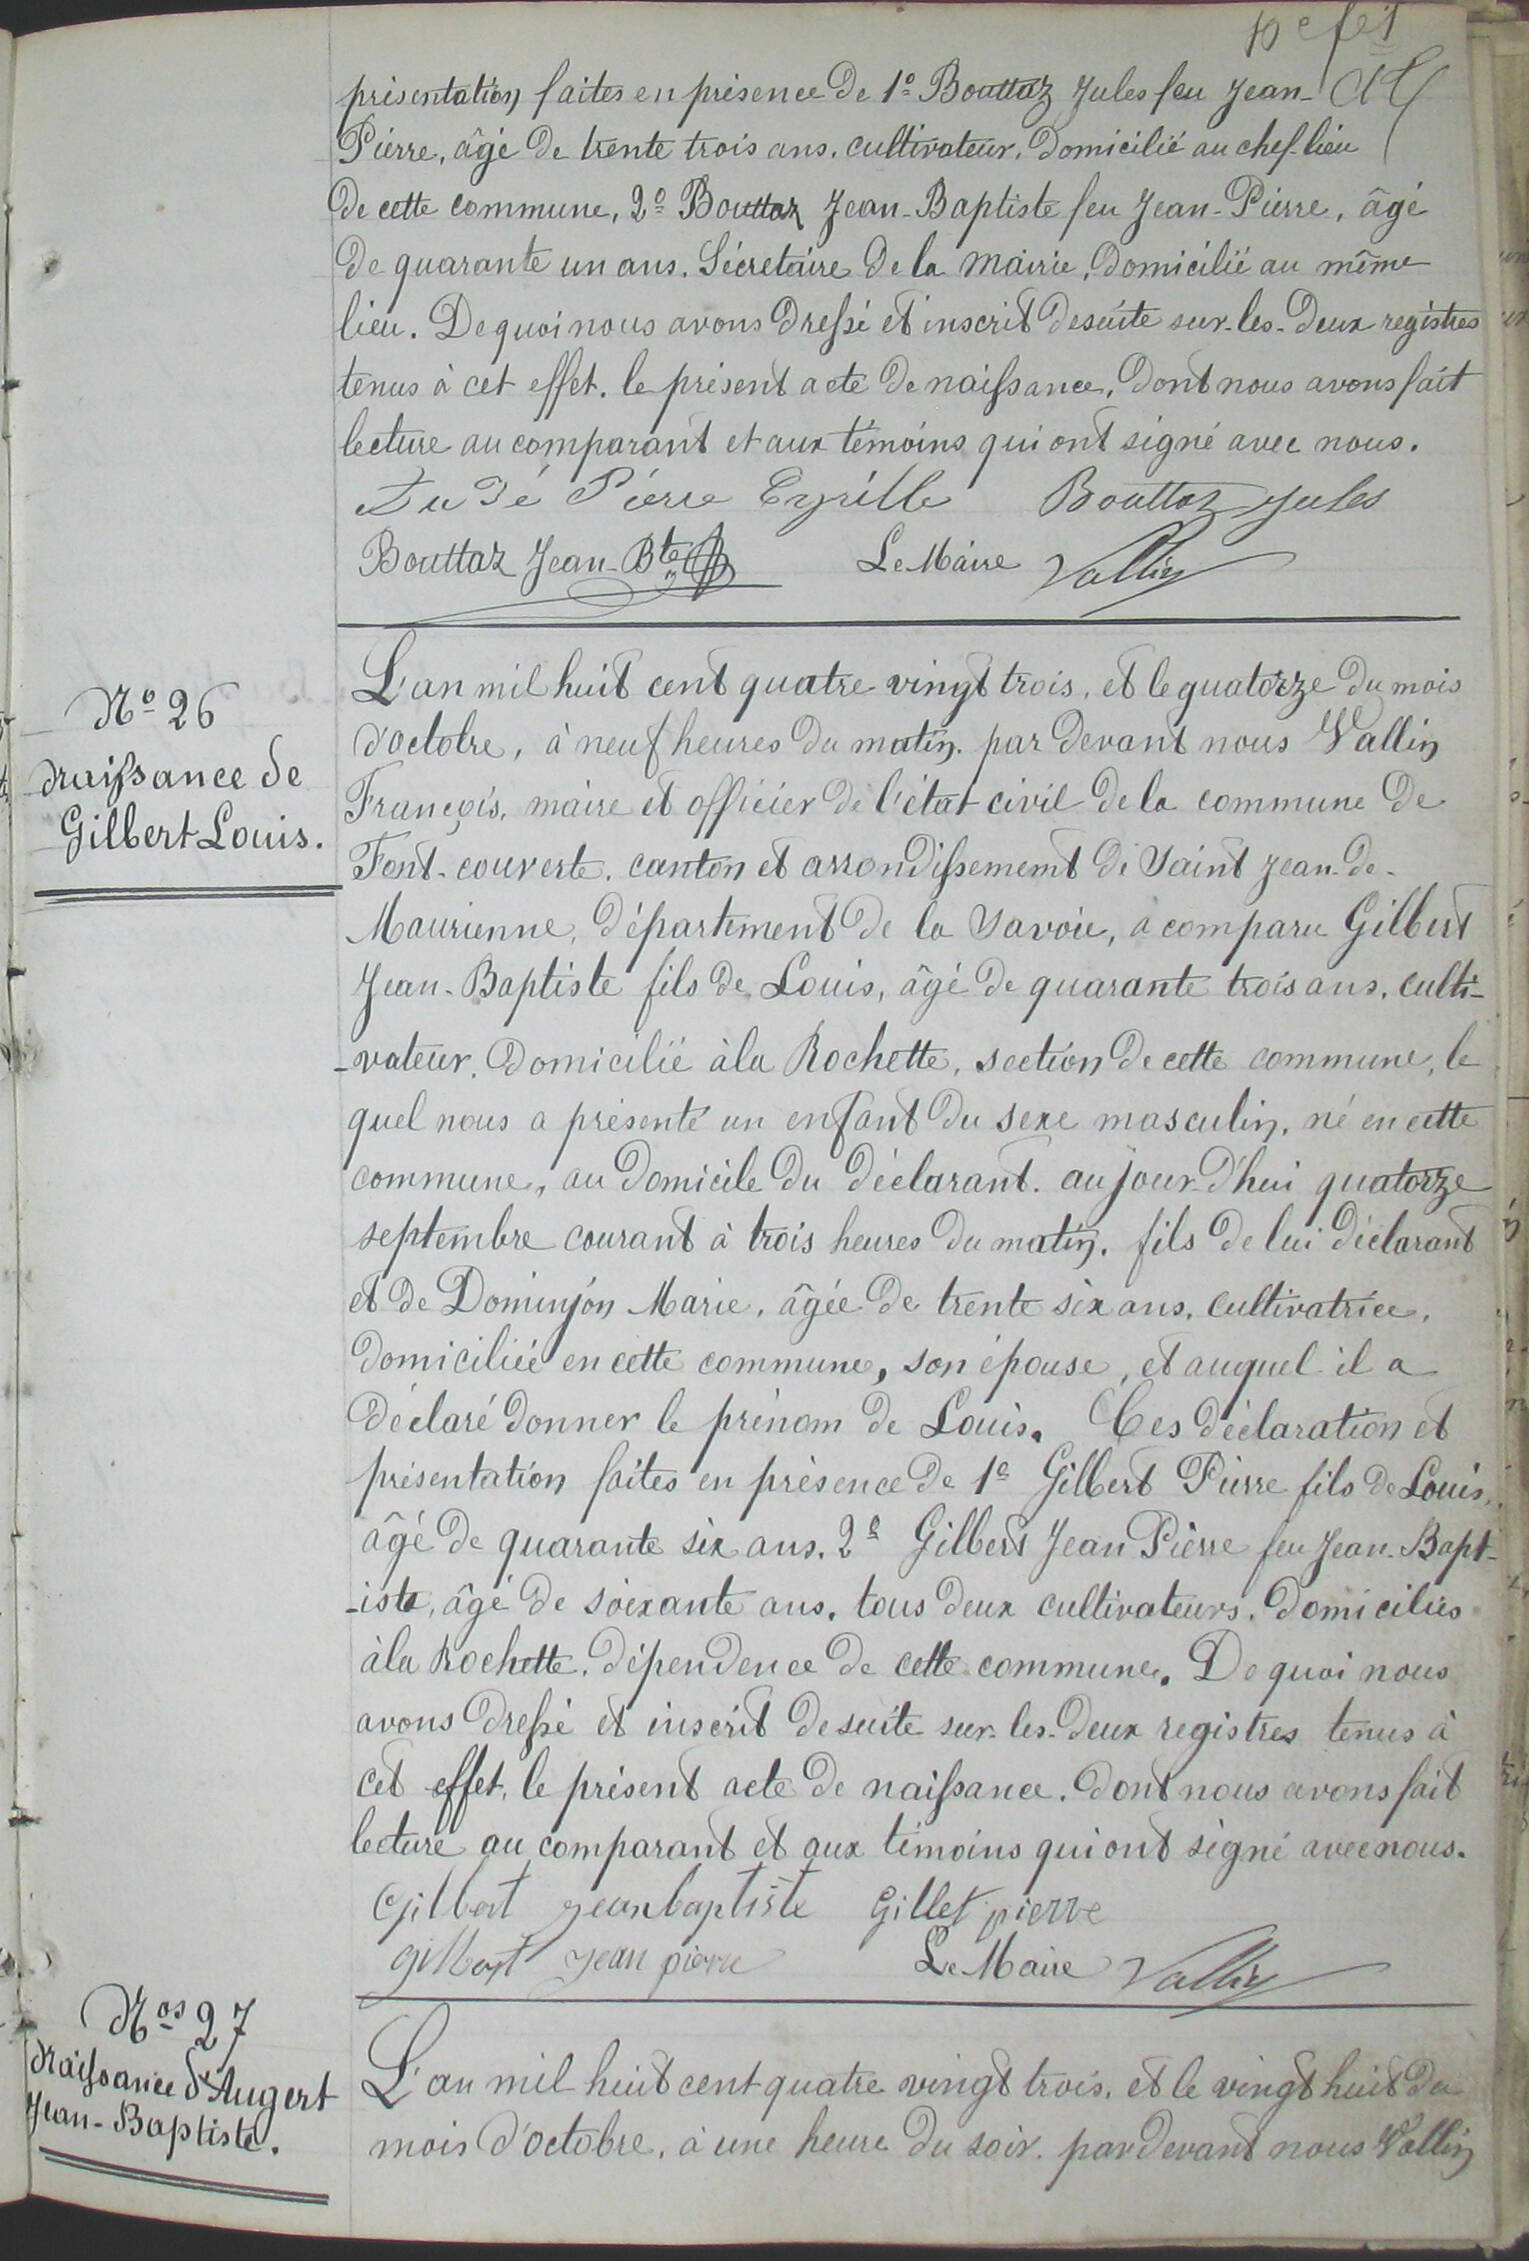 10e f et
présentation faites en présence de 1o Bouttaz Jules feu Jean-
Pierre, âgé de trente trois ans, cultivateur, domicilié au chef-lieu
de cette commune, 2o Bouttaz Jean-Baptiste feu Jean-Pierre, âgé
de quarante un ans, Sécretaire de la Mairie, domicilié au même
lieu. De quoi nous avons dressé et inscrit desuite sur-les-deux registres
tenus à cet effet, le présent acte de naissance, dont nous avons fait
lecture au comparant et aux témoins qui ont signé avec nous.
Pierre Cyrille Bouttaz Jules
Bouttaz Jean-Bte Le Maire Vallin
No 26
Naissance de
Gilbert Louis.
L'an mil huit cent quatre vingt trois, et le quatorze du mois
d'octobre, à neuf heures du matin, par devant nous Vallin
François, maire et officier de l'état civil de la commune de
Font-couverte, canton et arrondissement de Saint Jean-de-
Maurienne, département de la Savoie, a comparu Gilbert
Jean-Baptiste fils de Louis, âgé de quarante trois ans, culti-
-vateur, domicilié à la Rochette, section de cette commune, le
quel nous a présenté un enfant du sexe masculin, né en cette
commune, au domicile du déclarant, aujour-d'hui quatorze
septembre courant à trois heures du matin, fils de lui déclarant
et de Dominjon Marie, âgée de trente six ans, cultivatrice,
domiciliée en cette commune, son épouse, et auquel il a
déclaré donner le prénom de Louis. Ces déclaration et
présentation faites en présence de 1e Gilbert Pierre fils de Louis,
âgé de quarante six ans, 2e Gilbert Jean Pierre feu Jean-Bapt-
-iste, âgé de soixante ans, tous deux cultivateurs, domiciliés
à la Rochette, dépendence de cette commune. De quoi nous
avons dressé et inscrit desuite sur-les-deux registres tenus à
cet effet, le présent acte de naissance, dont nous avons fait
lecture au comparant et aux témoins qui ont signé avec nous.
Gilbert jean baptiste Gillet pierre
gilbert jean pierre Le Maire Vallin
Nos 27
Naissance d'Augert
Jean-Baptiste.
L'an mil huit cent quatre vingt trois, et le vingt huit du
mois d'octobre, à une heure du soir, par devant nous Vallin